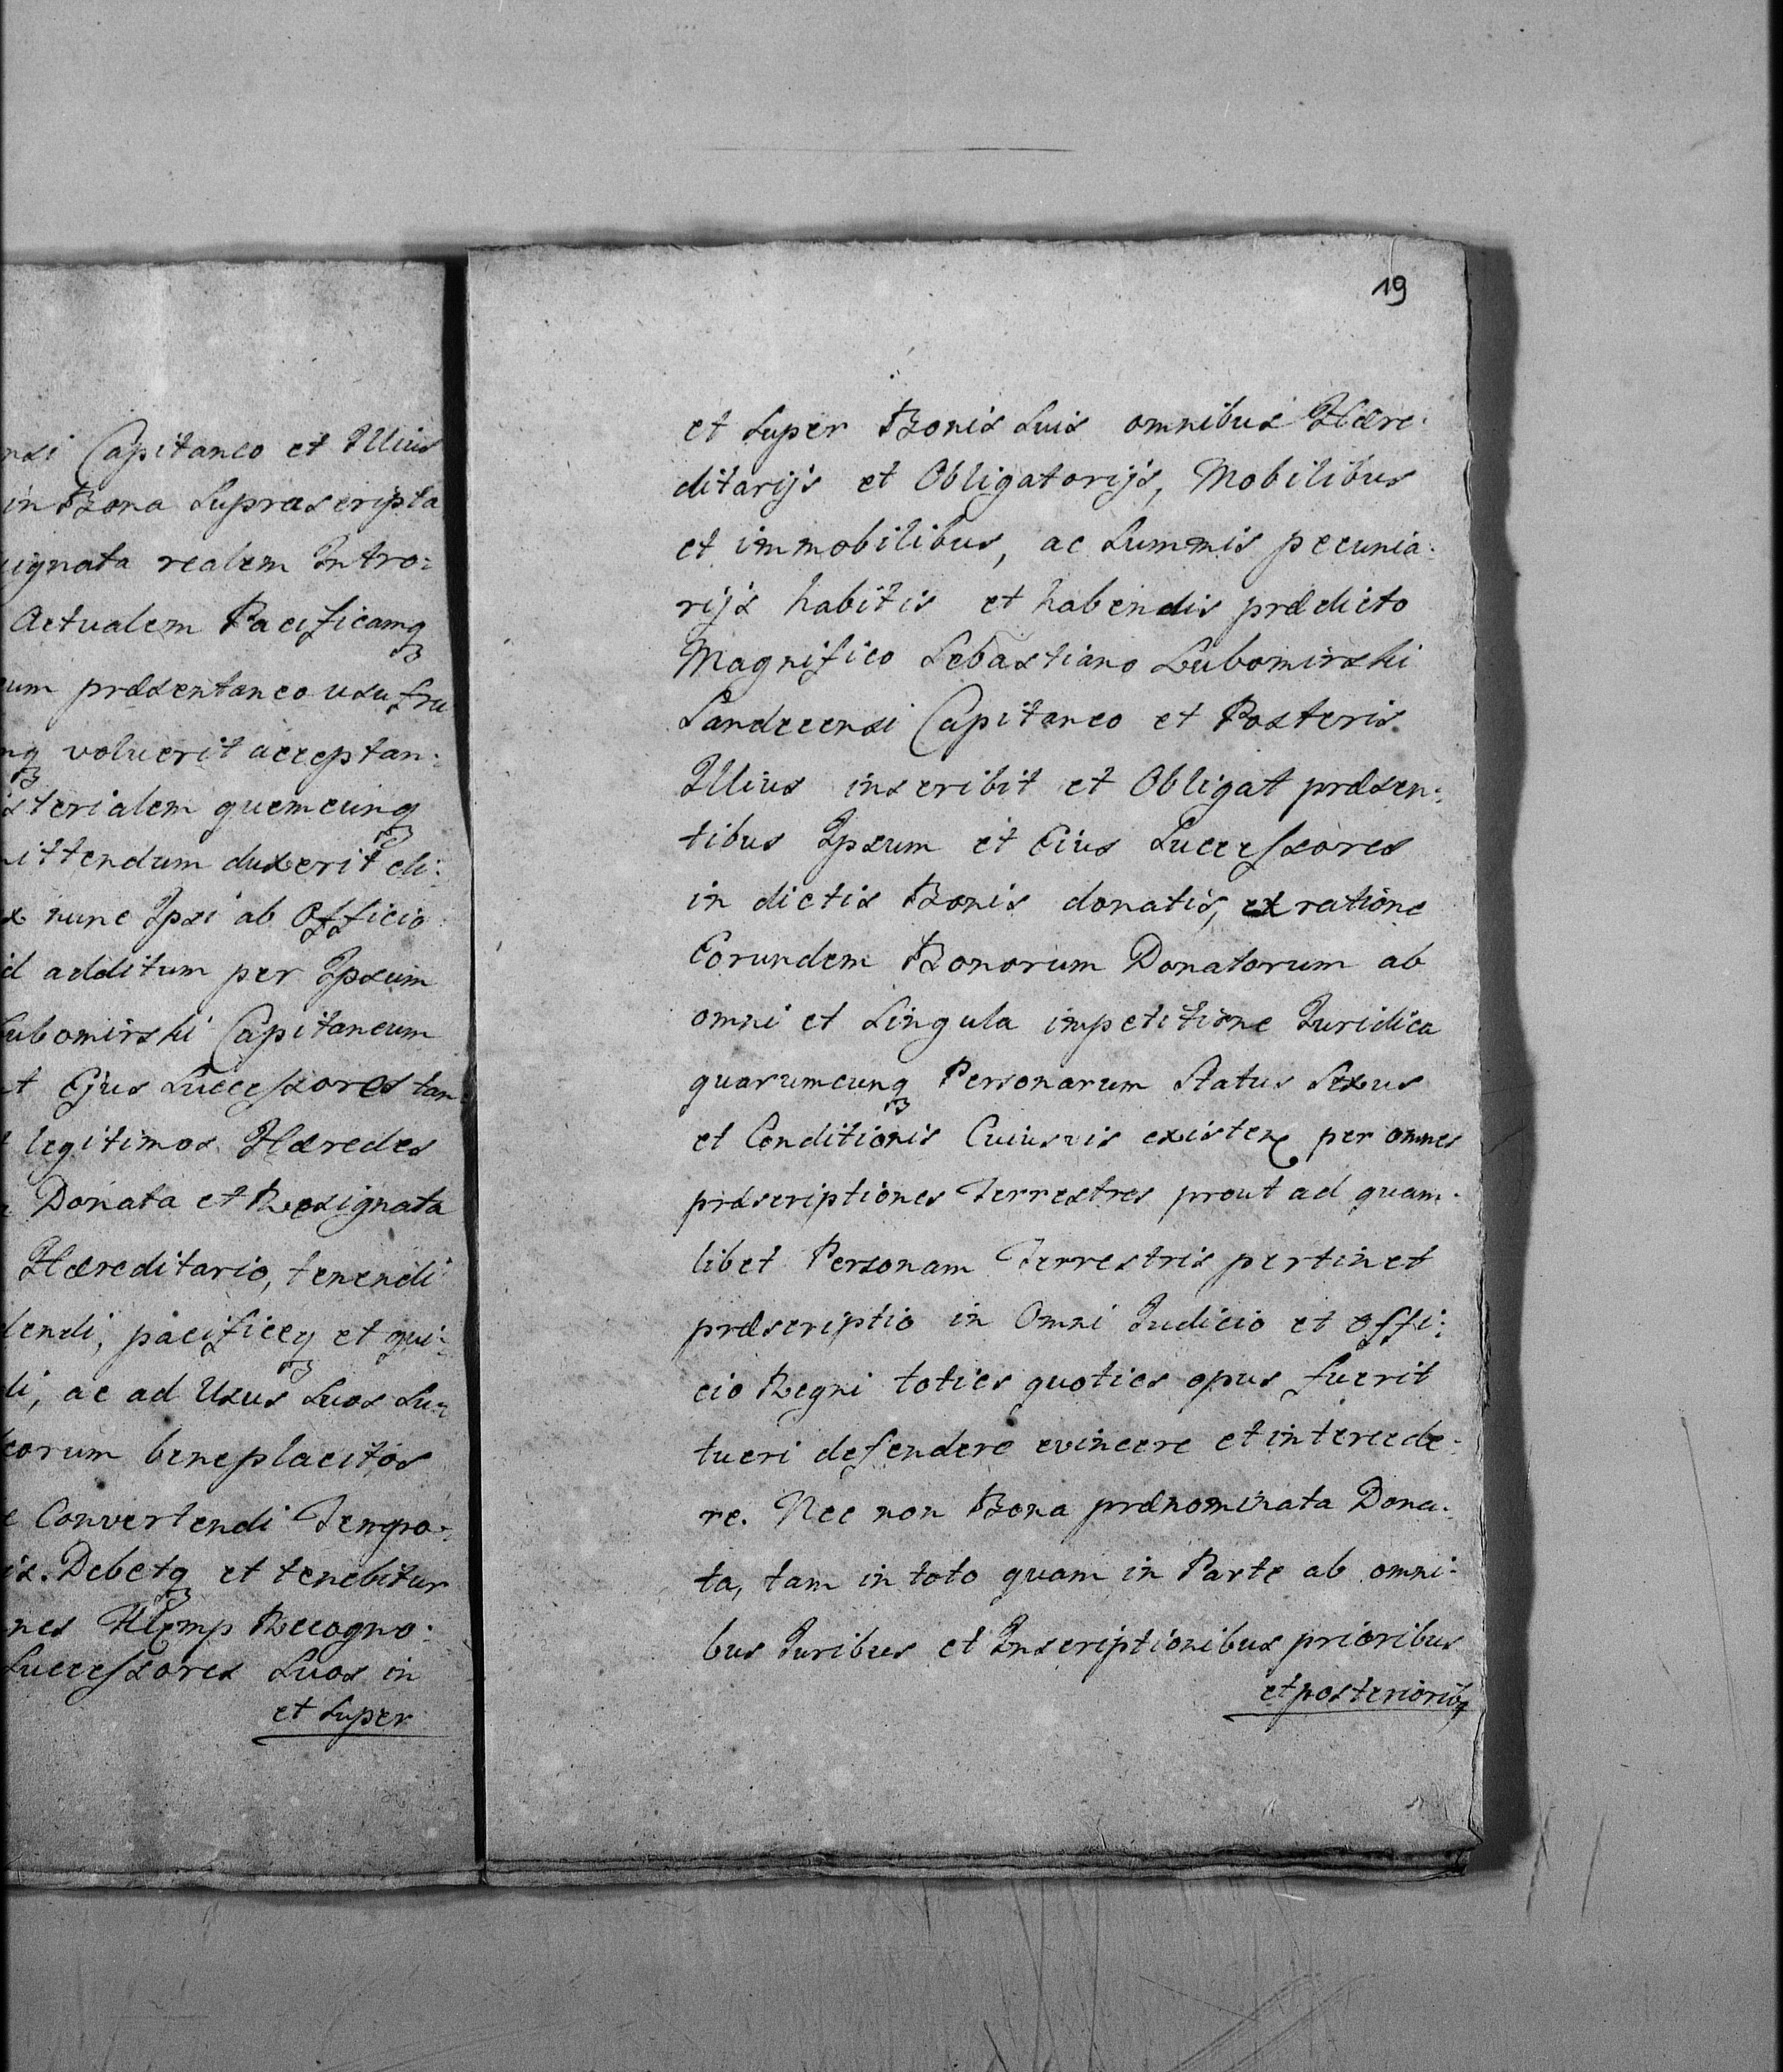 nsi Capitaneo et Illius
in Bona Supra scripta
signata realem Intro:
Actualem Pacificamq3
cum præsentaneo usufru
nq3 voluerit acceptan:
isterialem quemcunq3
mittendum duxerit eli:
x nunc Ipsi ab Officio
id additum per Ipsum
Lubomirski Capitaneum
et Ejus Successores tan:
t legitimos Hæredes
Donata et Resignata
Hæreditario, tenendi
dendi, pacificeq3 et qui:
di, ac ad Usus Suos Su:
corum beneplacitos
e Convertendi Tempo:
is. Debetq3 et tenebitur
nes Recogno:
Successores Suos in
et Super
19
et Super Bonis Suis omnibus Hære:
ditarijs et Obligatorijs, Mobilibus
et immobilibus, ac Summis pecunia:
rijs habitis et habendis prædicto
Magnifico Sebastiano Lubomirski
Sandecensi Capitaneo et Posteris
Illius inscribit et Obligat præsen:
tibus Ipsum et Eius Successores
in dictis Bonis donatis, ex ratione
Eorundem Bonorum Donatorum ab
omni et Singula impetitione Iuridica
quarumcunq3 Personarum Status Sexus
et Conditionis Cuiusvis existen per omnes
præscriptiones Terrestres prout ad quam:
libet Personam Terrestris pertinet
præscriptio in Omni Iudicio et Offi:
cio Regni toties quoties opus fuerit
tueri defendere evincere et intercede:
re. Nec non Bona prænominata Dona:
ta, tam in toto quam in Parte ab omni:
bus Iuribus et Inscriptionibus prioribus
et posterioribq